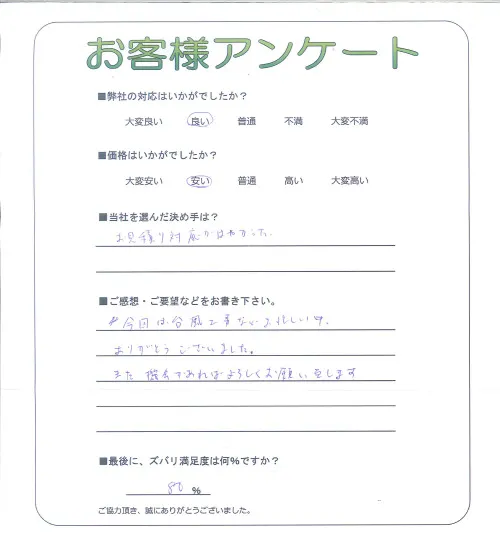 お客様アンケート
■弊社の対応はいかがでしたか?
大変良い 良い 普通 不満 大変不満
■価格はいかがでしたか?
大変安い 安い 普通 高い 大変高い
■当社を選んだ決め手は?
お見積り対応がはやかった。
■ご感想・ご要望などをお書き下さい。
今回は台風工事など お忙しい中、
ありがとうございました。
また機会があればよろしくお願い致します
■最後に、ズバリ満足度は何%ですか?
80 %
ご協力頂き、誠にありがとうございました。